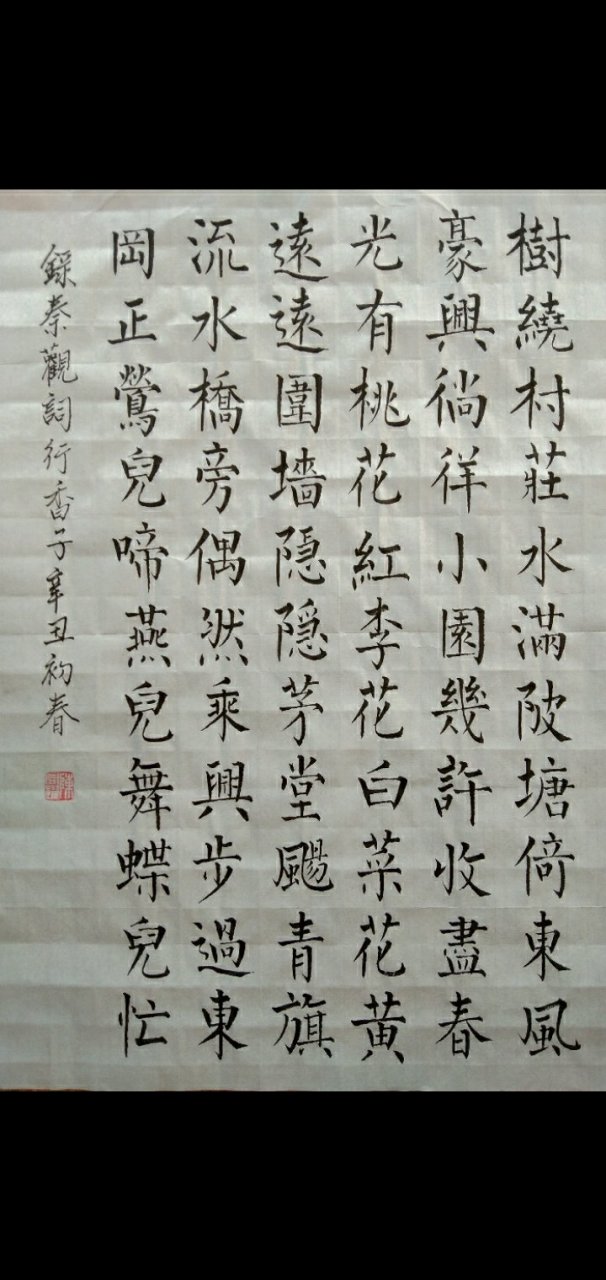 樹繞村莊水滿陂塘倚東風
豪興徜徉小園幾許收盡春
光有桃花紅李花白菜花黃
遠遠圍墻隱隱茅堂颺青旗
流水橋旁偶然乘興步過東
岡正鶯兒啼燕兒舞蝶兒忙
錄秦觀詞行香子辛丑初春